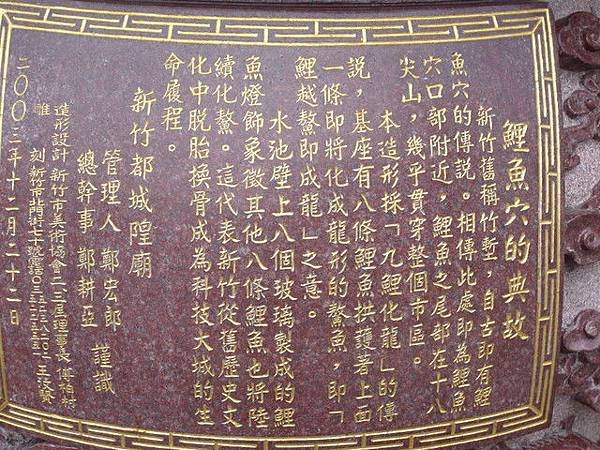 鯉魚穴的典故
新竹舊稱竹塹，自古即有鯉
魚穴的傳說。相傳此處即為鯉魚
穴口部附近，鯉魚之尾部在十八
尖山，幾乎貫穿整個市區。
本造形採「九鯉化龍」的傳
說，基座有八條鯉魚拱護著上面
一條即將化成龍形的鰲魚，即「
鯉越鰲即成龍」之意。
水池壁上八個玻璃製成的鯉
魚燈飾象徵其他八條鯉魚也將陸
續化鰲。這代表新竹從舊歷史文
化中脫胎換骨成為科技大城的生
命履程。
新竹都城隍廟
管理人 鄭宏郎
總幹事 鄭耕亞 謹識
造形設計 新竹市美術協會二、三屆理事長 傅柏村
雕 刻 新竹市北門街
二00三年十二月二十二日